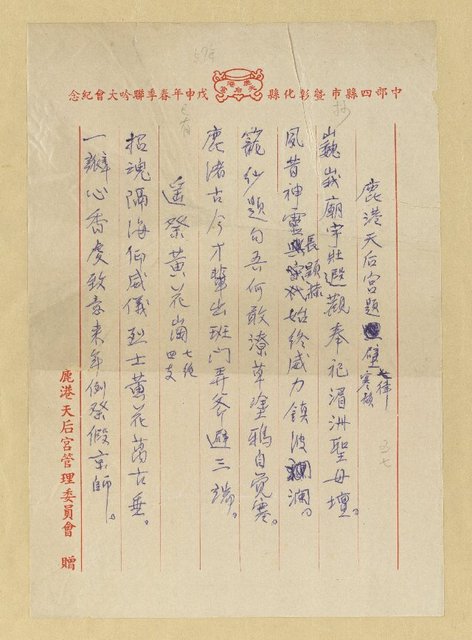 中部四縣市暨彰化縣 戊申年春季聯吟大會紀念
鹿港天后宮題壁 七律 寒韻
巍峩廟宇壯遐觀奉祀湄洲聖母壇。
夙昔神靈長顯赫始終威力鎮波瀾。
籠紗題句吾何敢潦草塗鴉自覺寒。
鹿渚古今才輩出班門弄斧避三端。
遙祭黃花崗 七絕 四支
招魂隔海仰威儀烈士黃花萬古垂。
一瓣心香虔致意來年例祭假京師。
鹿港天后宮管理委員會 贈